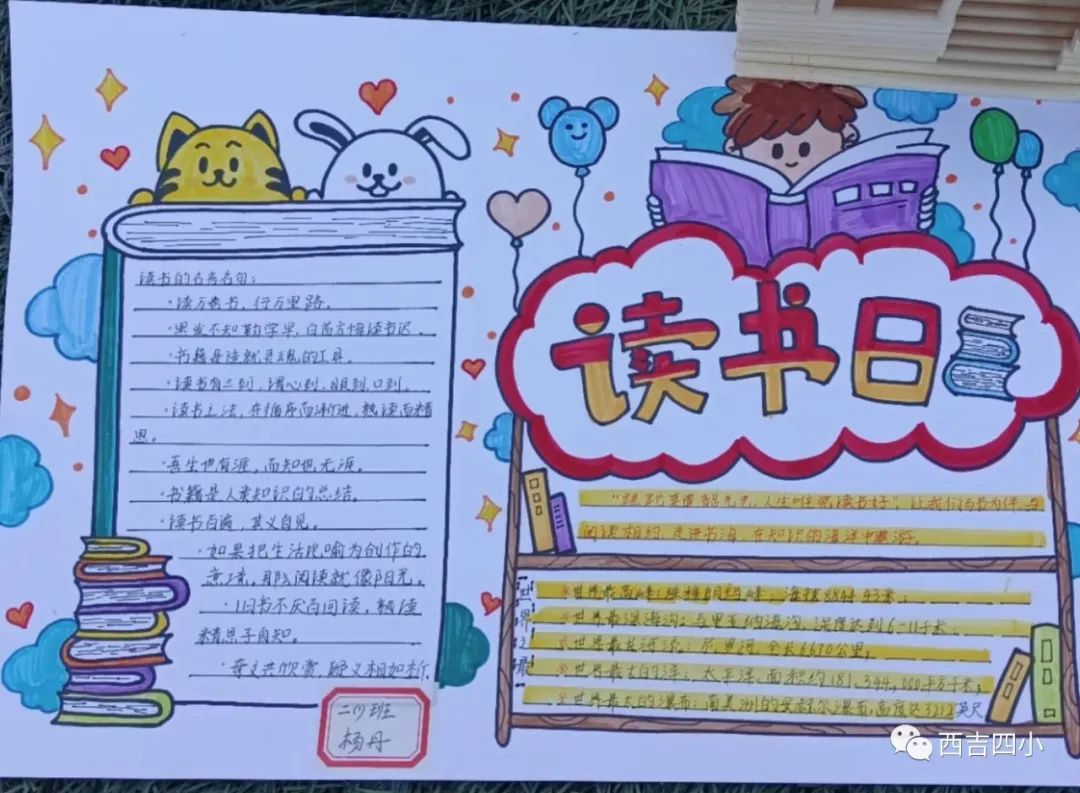 读书的名言名句：
·读万卷书，行万里路。
·黑发不知勤学早，白首方悔读书迟。
·书籍是造就灵魂的工具。
·读书有三到，谓心到，眼到，口到。
·读书之法，在循序而渐进，熟读而精
思。
·吾生也有涯，而知也无涯。
·书籍是人类知识的总结。
·读书百遍，其义自见。
·如果把生活比喻为创作的
意境，那么阅读就像阳光。
·旧书不厌百回读，熟读
精思子自知。
·奇文共欣赏，疑义相如析
二(1)班
杨丹
读书日
人生唯
读书好"，让我们与书为伴，与
阅读相约，走进书海，在知识的海洋中遨游。
世界之最
※世界最高峰：珠穆朗玛峰，海拔8844.43米；
※世界最深海沟：马里亚纳海沟，深度达到6-11千米。
※世界最长河流：尼罗河，全长6670公里；
※世界最大的洋：太平洋，面积约181,344,000平方千米；
※世界最大的瀑布：南美洲的安赫尔瀑布，高度达3212英尺
西吉四小